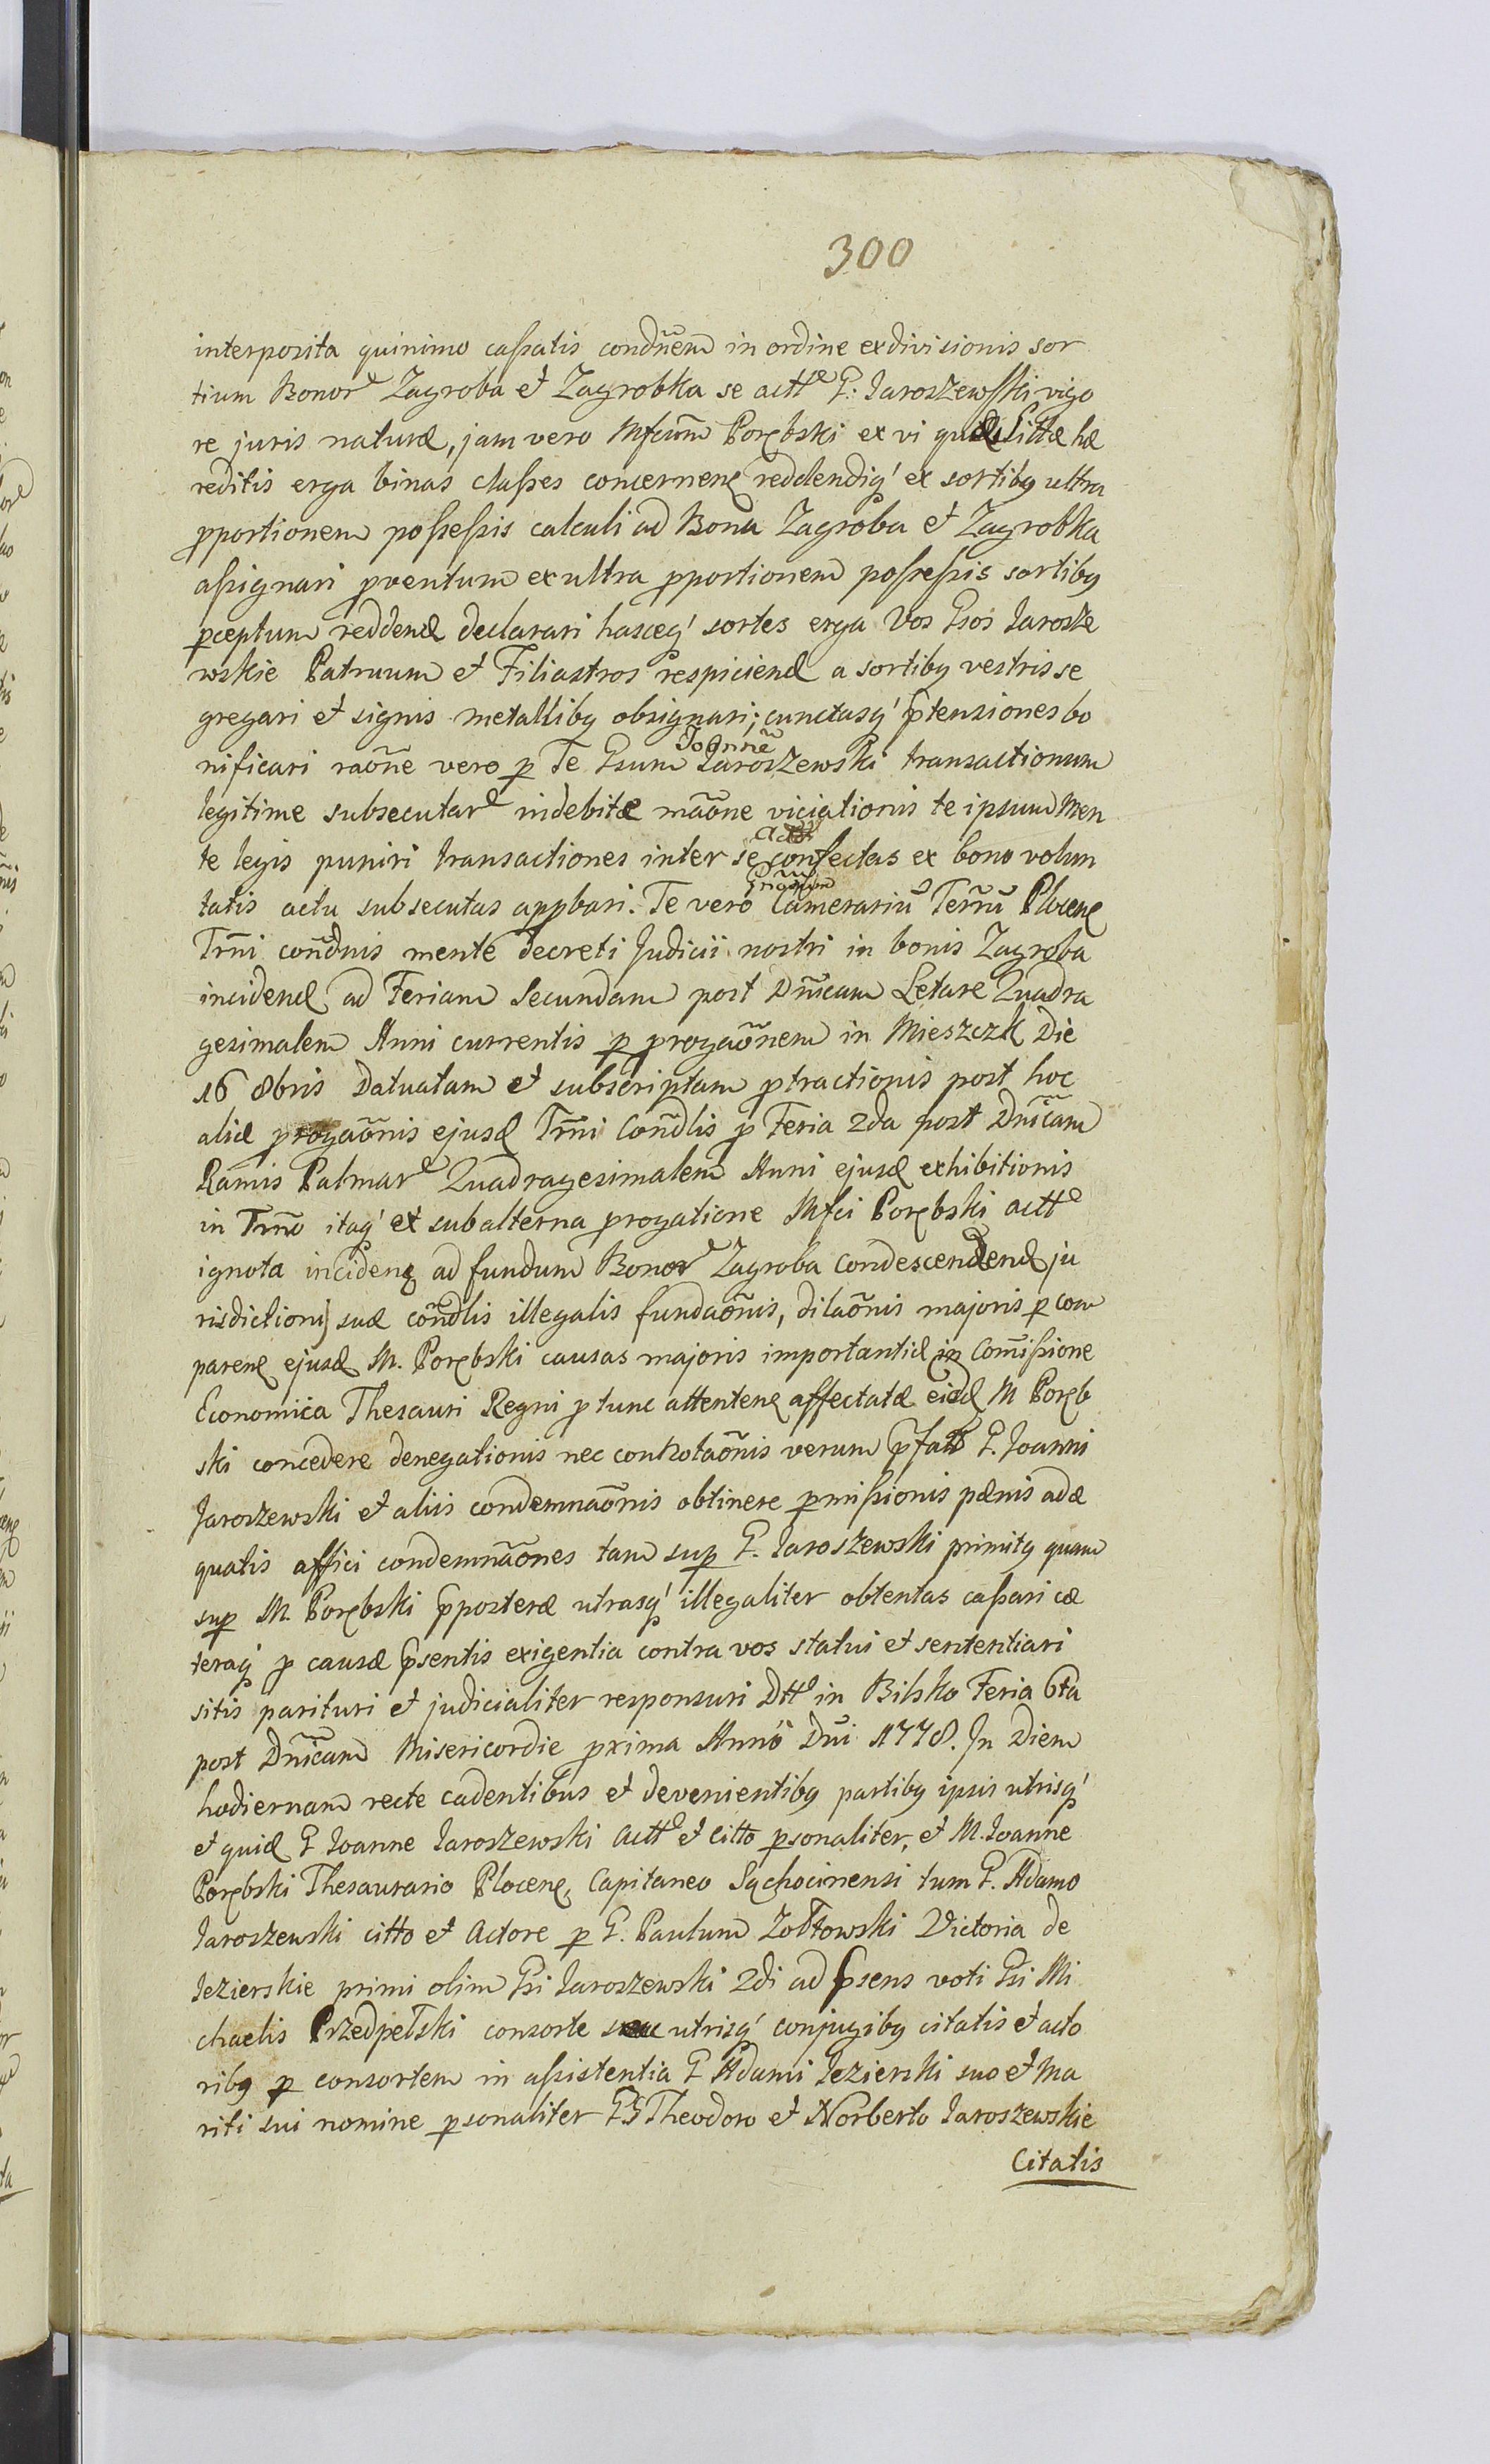 300
interposita quinimo cassatis condñem in ordine exdivisionis sor
tium Bonor Zagroba et Zagrobka se actt G. Jaroszewski vigo
re juris naturæ, jam vero Mfcum Porębski ex vi hæ
reditis erga binas classes concernen reddendiq' ex sortibg ultra
pportionem possessis calculi ad Bona Zagroba et Zagrobka
assignari pventum ex ultra pportionem possessis sortibg
pceptum reddend declarari hasceq' sortes erga Vos Gsos Jarosze
wskie Patruum et Filiastros respiciend a sortibg vestris se
gregari et signis metallibg obsignari; cunctasq' ptensiones bo
nificari raõne vero p Te Gsum Joannẽ Jaroszewski transactionum
legitime subsecutar indebitæ mãone viciationis te ipsum Men
te legis puniri transactiones inter se confectas ex bono volun
tatis actu subsecutas appbari. Te vero Camerariũ Terrũ Plocen
Trñi condnis mente decreti Judicii nostri in bonis Zagroba
inciden ad Feriam Secundam post Dnicam Letare Quadra
gesimalem Anni currentis p progaõnem in Mieszczk Die
16 8bris Datuatam et subscriptam ptractionis post hoc
aliæ progaõnis ejusd Trñi Condlis p Feria 2da post Dnicam
Ramis Palmar Quadragesimalem Anni ejusd exhibitionis
in Trño itaq' et subalterna progatione Mfci Porębski actt
ignota inciden ad fundum Bonor Zagroba condescendend ju
risdictionis suæ condlis illegalis fundaõnis, dilaõnis majoris p com
paren ejusd M. Porębski causas majoris importantiæ in Comissione
Economica Thesauri Regni p tunc attenten affectatæ eid M Poręb
ski concedere denegationis nec conotaõnis verum pfatt G. Joanni
Jaroszewski et aliis condemnaõnis obtinere pmissionis pænis adæ
quatis affici condemnãones tam sup G. Jaroszewski primitg quam
sup M. Porębski pposteræ utrasq' illegaliter obtentas cassari cæ
teraq' p causæ psentis exigentia contra vos statui et sententiari
sitis parituri et judicialiter responsuri Dtt in Bilsko Feria 6ta
post Dnicam Misericordie pxima Anno Dni 1778. In Diem
hodiernam recte cadentibus et devenientibg partibg ipsis utrisq'
et quid G Joanne Jaroszewski Actt et Citto psonaliter, et M. Joanne
Porębski Thesaurario Plocen, Capitaneo Sąchocinensi tum G. Adamo
Jaroszewski citto et Actore p G. Paulum Zołtowski Victoria de
Jezierskie primi olim Gsi Jaroszewski 2di ad psens voti Gsi Mi
chaelis Przedpełski consorte utrisq' conjugibg citatis et acto
ribg p consortem in assistentia G Adami Jezierski suo et Ma
riti sui nomine psonaliter GG Theodoro et Norberto Jaroszewskie
Citatis